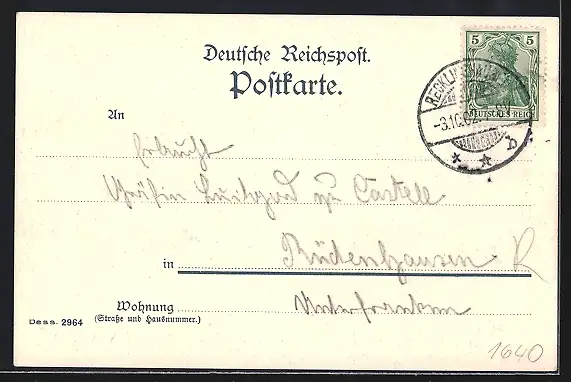 Deutsche Reichspost.
Postkarte.
5 5
DEUTSCHES REICH
RECKLINGHAUSEN
-3.10.02.
* * b
An
Erlaucht
Gräfin Luitgard zu Castell
in Rüdenhausen
Unterfranken
Wohnung
(Straße und Hausnummer.)
Dess. 2964
1640